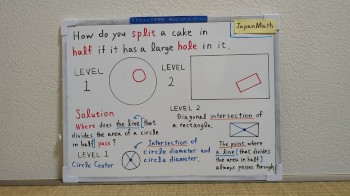 How do you split a cake in
half if it has a large hole in it.
JapanMath
LEVEL
1
LEVEL
2
Solution
Where does the line [that
divides the area of a circle
in half] pass?
LEVEL 1
Circle Center
Intersection of
circle diameter and
circle diameter.
LEVEL 2
Diagonal intersection of
a rectangle.
The point where
a line [that divides
the area in half]
always passes through.